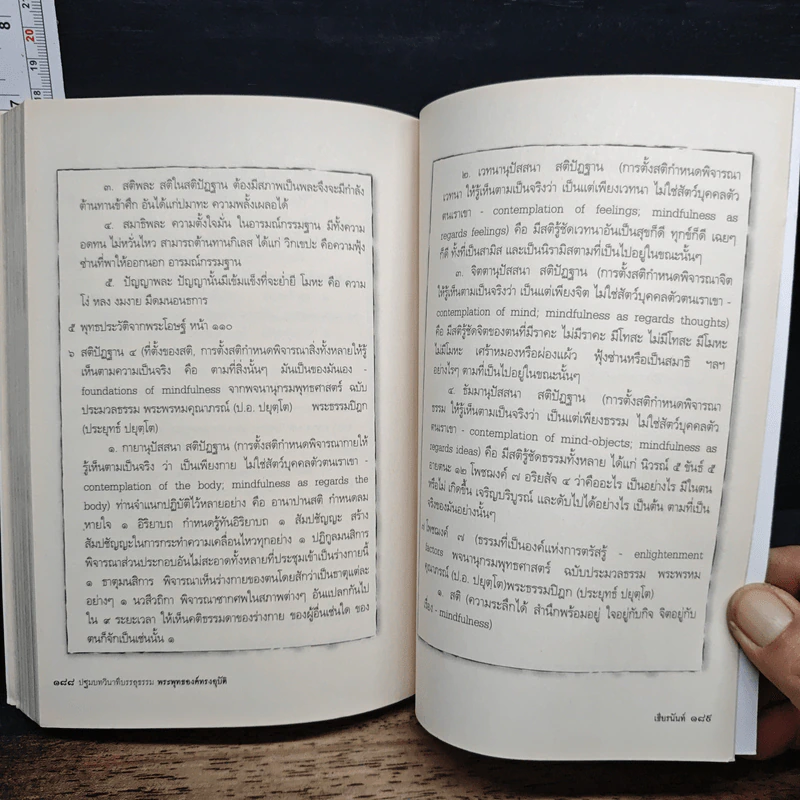 8
7
20
19
18
๓. สติพละ สติในสติปัฏฐาน ต้องมีสภาพเป็นพละจึงจะมีกำลัง
ต้านทานข้าศึก อันได้แก่ปมาทะ ความพลั้งเผลอได้
๔. สมาธิพละ ความตั้งใจมั่น ในอารมณ์กรรมฐาน มีทั้งความ
อดทน ไม่หวั่นไหว สามารถต้านทานกิเลส ได้แก่ วิกเขปะ คือความฟุ้ง
ซ่านที่พาให้ออกนอก อารมณ์กรรมฐาน
๕. ปัญญาพละ ปัญญานั้นมีเข้มแข็งที่จะย่ำยี โมหะ คือ ความ
โง่ หลง งมงาย มืดมนอนธการ
๕ พุทธประวัติจากพระโอษฐ์ หน้า ๑๑๐
๖ สติปัฏฐาน ๔ (ที่ตั้งของสติ, การตั้งสติกำหนดพิจารณาสิ่งทั้งหลายให้รู้
เห็นตามความเป็นจริง คือ ตามที่สิ่งนั้นๆ มันเป็นของมันเอง -
foundations of mindfulness จากพจนานุกรมพุทธศาสตร์ ฉบับ
ประมวลธรรม พระพรหมคุณาภรณ์ (ป.อ. ปยุตฺโต) พระธรรมปิฎก
(ประยุทธ์ ปยุตฺโต)
๑. กายานุปัสสนา สติปัฏฐาน (การตั้งสติกำหนดพิจารณากายให้
รู้เห็นตามเป็นจริง ว่า เป็นเพียงกาย ไม่ใช่สัตว์บุคคลตัวตนเราเขา -
contemplation of the body; mindfulness as regards the
body) ท่านจำแนกปฏิบัติไว้หลายอย่าง คือ อานาปานสติ กำหนดลม
หายใจ ๑ อิริยาบถ กำหนดรู้ทันอิริยาบถ ๑ สัมปชัญญะ สร้าง
สัมปชัญญะในการกระทำความเคลื่อนไหวทุกอย่าง ๑ ปฏิกูลมนสิการ
พิจารณาส่วนประกอบอันไม่สะอาดทั้งหลายที่ประชุมเข้าเป็นร่างกายนี้
๑ ธาตุมนสิการ พิจารณาเห็นร่างกายของตนโดยสักว่าเป็นธาตุแต่ละ
อย่างๆ ๑ นวสีวถิกา พิจารณาซากศพในสภาพต่างๆ อันแปลกกันไป
ใน ๙ ระยะเวลา ให้เห็นคติธรรมดาของร่างกาย ของผู้อื่นเช่นใด ของ
ตนก็จักเป็นเช่นนั้น ๑
๑๘๘ ปฐมบทวินาทีบรรลุธรรม พระพุทธองค์ทรงอุบัติ
๒. เวทนานุปัสสนา สติปัฏฐาน (การตั้งสติกำหนดพิจารณา
เวทนา ให้รู้เห็นตามเป็นจริงว่า เป็นแต่เพียงเวทนา ไม่ใช่สัตว์บุคคลตัว
ตนเราเขา - contemplation of feelings; mindfulness as
regards feelings) คือ มีสติรู้ชัดเวทนาอันเป็นสุขก็ดี ทุกข์ก็ดี เฉยๆ
ก็ดี ทั้งที่เป็นสามิส และเป็นนิรามิสตามที่เป็นไปอยู่ในขณะนั้นๆ
๓. จิตตานุปัสสนา สติปัฏฐาน (การตั้งสติกำหนดพิจารณาจิต
ให้รู้เห็นตามเป็นจริงว่า เป็นแต่เพียงจิต ไม่ใช่สัตว์บุคคลตัวตนเราเขา -
contemplation of mind; mindfulness as regards thoughts)
คือ มีสติรู้ชัดจิตของตนที่มีราคะ ไม่มีราคะ มีโทสะ ไม่มีโทสะ มีโมหะ
ไม่มีโมหะ เศร้าหมองหรือผ่องแผ้ว ฟุ้งซ่านหรือเป็นสมาธิ ฯลฯ
อย่างไรๆ ตามที่เป็นไปอยู่ในขณะนั้นๆ
๔. ธัมมานุปัสสนา สติปัฏฐาน (การตั้งสติกำหนดพิจารณา
ธรรม ให้รู้เห็นตามเป็นจริงว่า เป็นแต่เพียงธรรม ไม่ใช่สัตว์บุคคลตัว
ตนเราเขา - contemplation of mind-objects; mindfulness as
regards ideas) คือ มีสติรู้ชัดธรรมทั้งหลาย ได้แก่ นิวรณ์ ๕ ขันธ์ ๕
อายตนะ ๑๒ โพชฌงค์ ๗ อริยสัจ ๔ ว่าคืออะไร เป็นอย่างไร มีในตน
หรือไม่ เกิดขึ้น เจริญบริบูรณ์ และดับไปได้อย่างไร เป็นต้น ตามที่เป็น
จริงของมันอย่างนั้นๆ
โพชฌงค์ ๗ (ธรรมที่เป็นองค์แห่งการตรัสรู้ - enlightenment
factors พจนานุกรมพุทธศาสตร์ ฉบับประมวลธรรม พระพรหม
คุณาภรณ์ (ป.อ. ปยุตฺโต)พระธรรมปิฎก (ประยุทธ์ ปยุตฺโต)
๑. สติ (ความระลึกได้ สำนึกพร้อมอยู่ ใจอยู่กับกิจ จิตอยู่กับ
เรื่อง - mindfulness)
เธียรนันท์ ๑๘๙